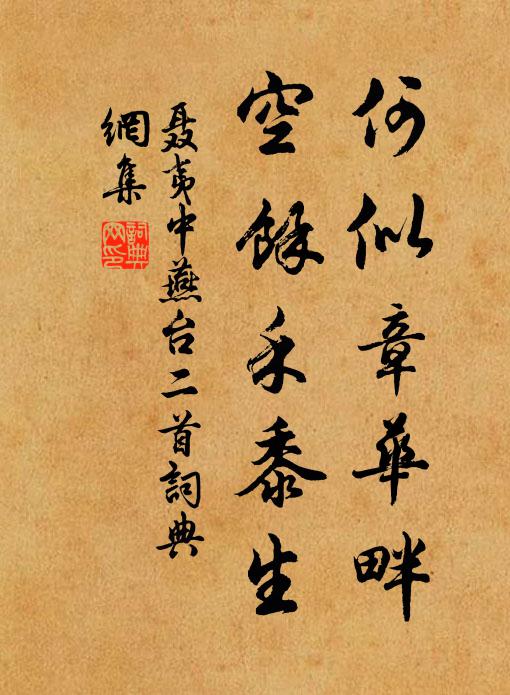 何似章華畔
空餘禾黍生
聶夷中燕台二首詞典
網集
詞典
網印